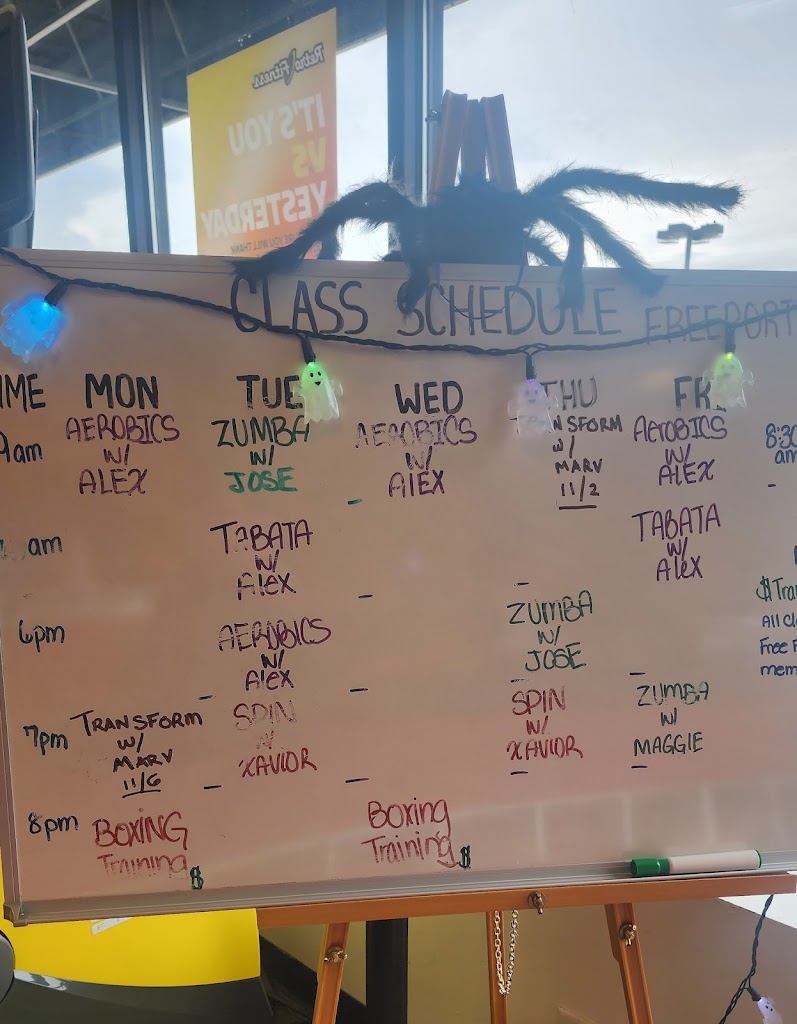 Retro Fitness
IT'S YOU
VS
YESTERDAY
CLASS SCHEDULE FREEPORT
IME MON TUE WED THU FRI
9am
AEROBICS
W/
ALEX
ZUMBA
W/
JOSE
AEROBICS
W/
AlEX
TRANSFORM
W/
MARV
11/2
AEROBICS
W/
ALEX
8:30
am
am
TABATA
W/
Alex
TABATA
W/
Alex
$Tra
All Cl
Free F
mem
6pm
AEROBICS
W/
Alex
ZUMBA
W/
JOSE
7pm
TRANSFORM
W/
MARV
11/6
SPIN
W/
XAVIOR
SPIN
W/
XAVIOR
ZUMBA
W/
MAGGIE
8pm
BOXING
Training $
Boxing
Training $